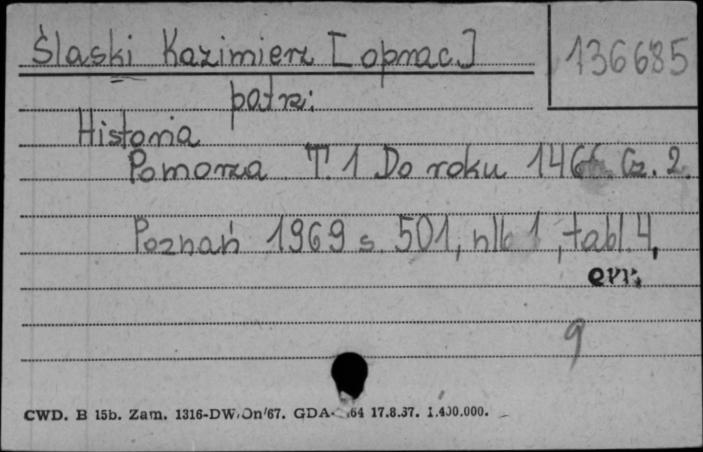 Ślaski Kazimierz [oprac.]
136685
patrz:
Historia
Pomorza T. 1 Do roku 1466. Cz. 2.
Poznań 1969 s. 501, nlb 1, tabl. 4,
err.
9
CWD. B 15b. Zam. 1316-DW/Dn/67. GDA- 64 17.8.67. 1.400.000.